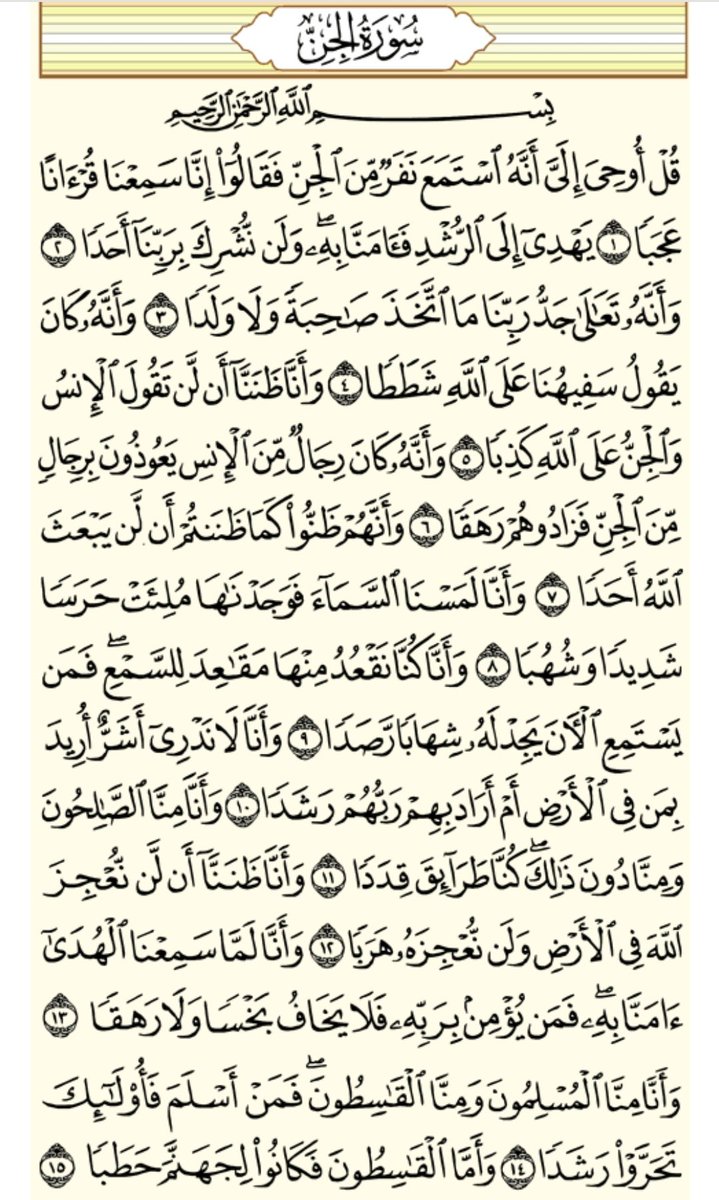 سُورَةُ الجِنِّ
بِسْمِ اللَّهِ الرَّحْمَٰنِ الرَّحِيمِ
قُلْ أُوحِىَ إِلَىَّ أَنَّهُ ٱسْتَمَعَ نَفَرٌ مِّنَ ٱلْجِنِّ فَقَالُوٓا۟ إِنَّا سَمِعْنَا قُرْءَانًا
عَجَبًا ١ يَهْدِىٓ إِلَى ٱلرُّشْدِ فَـَٔامَنَّا بِهِۦ ۖ وَلَن نُّشْرِكَ بِرَبِّنَآ أَحَدًا ٢
وَأَنَّهُۥ تَعَٰلَىٰ جَدُّ رَبِّنَا مَا ٱتَّخَذَ صَٰحِبَةً وَلَا وَلَدًا ٣ وَأَنَّهُۥ كَانَ
يَقُولُ سَفِيهُنَا عَلَى ٱللَّهِ شَطَطًا ٤ وَأَنَّا ظَنَنَّآ أَن لَّن تَقُولَ ٱلْإِنسُ
وَٱلْجِنُّ عَلَى ٱللَّهِ كَذِبًا ٥ وَأَنَّهُۥ كَانَ رِجَالٌ مِّنَ ٱلْإِنسِ يَعُوذُونَ بِرِجَالٍ
مِّنَ ٱلْجِنِّ فَزَادُوهُمْ رَهَقًا ٦ وَأَنَّهُمْ ظَنُّوا۟ كَمَا ظَنَنتُمْ أَن لَّن يَبْعَثَ
ٱللَّهُ أَحَدًا ٧ وَأَنَّا لَمَسْنَا ٱلسَّمَآءَ فَوَجَدْنَٰهَا مُلِئَتْ حَرَسًا
شَدِيدًا وَشُهُبًا ٨ وَأَنَّا كُنَّا نَقْعُدُ مِنْهَا مَقَٰعِدَ لِلسَّمْعِ ۖ فَمَن
يَسْتَمِعِ ٱلْـَٔانَ يَجِدْ لَهُۥ شِهَابًا رَّصَدًا ٩ وَأَنَّا لَا نَدْرِىٓ أَشَرٌّ أُرِيدَ
بِمَن فِى ٱلْأَرْضِ أَمْ أَرَادَ بِهِمْ رَبُّهُمْ رَشَدًا ١٠ وَأَنَّا مِنَّا ٱلصَّٰلِحُونَ
وَمِنَّا دُونَ ذَٰلِكَ ۖ كُنَّا طَرَآئِقَ قِدَدًا ١١ وَأَنَّا ظَنَنَّآ أَن لَّن نُّعْجِزَ
ٱللَّهَ فِى ٱلْأَرْضِ وَلَن نُّعْجِزَهُۥ هَرَبًا ١٢ وَأَنَّا لَمَّا سَمِعْنَا ٱلْهُدَىٰٓ
ءَامَنَّا بِهِۦ ۖ فَمَن يُؤْمِنۢ بِرَبِّهِۦ فَلَا يَخَافُ بَخْسًا وَلَا رَهَقًا ١٣
وَأَنَّا مِنَّا ٱلْمُسْلِمُونَ وَمِنَّا ٱلْقَٰسِطُونَ ۖ فَمَنْ أَسْلَمَ فَأُو۟لَٰٓئِكَ
تَحَرَّوْا۟ رَشَدًا ١٤ وَأَمَّا ٱلْقَٰسِطُونَ فَكَانُوا۟ لِجَهَنَّمَ حَطَبًا ١٥